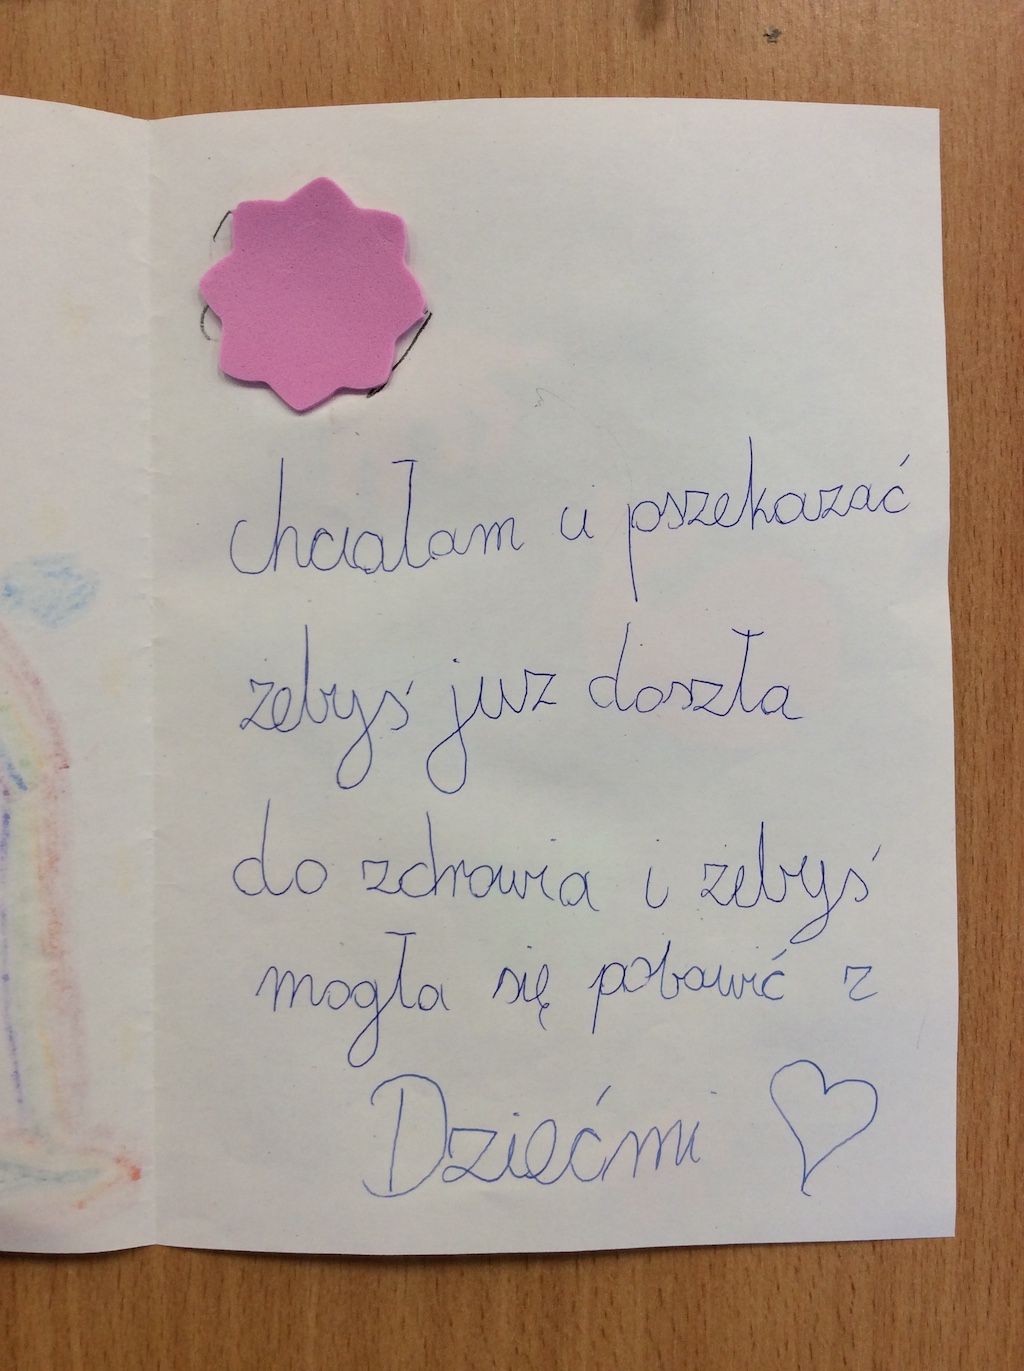 chciałam ci pszekazać
żebyś już doszła
do zdrowia i żebyś
mogła się pobawić z
Dziećmi